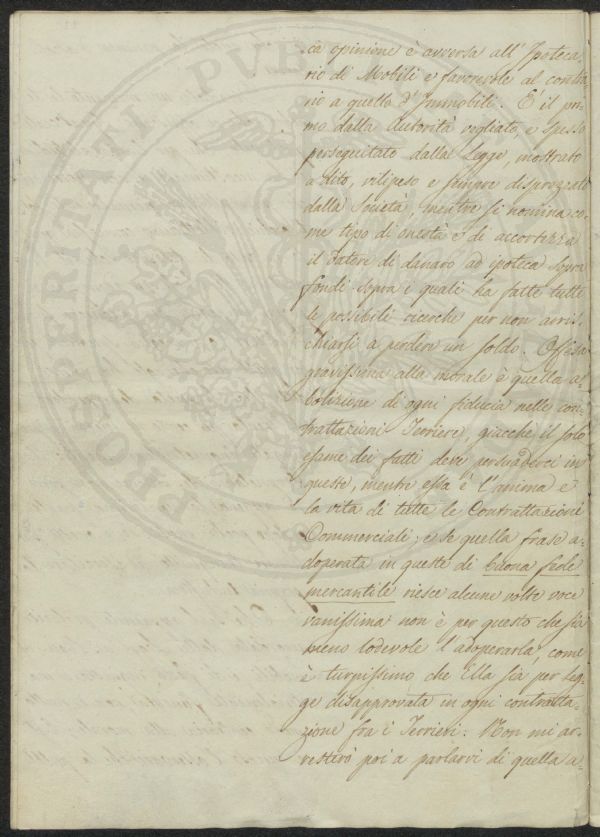 ca opinione è avversa all'Ipoteca
rio di Mobili e favorevole al contra
rio a quello d'Immobili. È il pri
mo dalla Autorità vegliato, e spesso
perseguitato dalla Legge, mostrato
a dito, vilipeso e sempre disprezzato
dalla Società, mentre si nomina co
me tipo di onestà e di accortezza
il datore di danaro ad ipoteca sopra
fondi sopra i quali ha fatte tutte
le possibili ricerche per non arris
chiarsi a perdere un soldo. Offesa
gravissima alla morale è quella a-
bolizione di ogni fiducia nelle con
trattazioni Terriere, giacchè il solo
esame dei fatti deve persuaderci in
queste, mentre essa è l'anima e
la vita di tutte le Contrattazioni
Commerciali; e se quella frase a-
doperata in queste di buona fede
mercantile riesce alcune volte voce
vanissima non è per questo che sia
meno lodevole l'adoperarla, come
è turpissimo che Ella sia per leg-
ge disapprovata in ogni contratta-
zione fra i Terrieri. Non mi ar-
resterò poi a parlarvi di quella a-
PROSPERITATI PVBLI